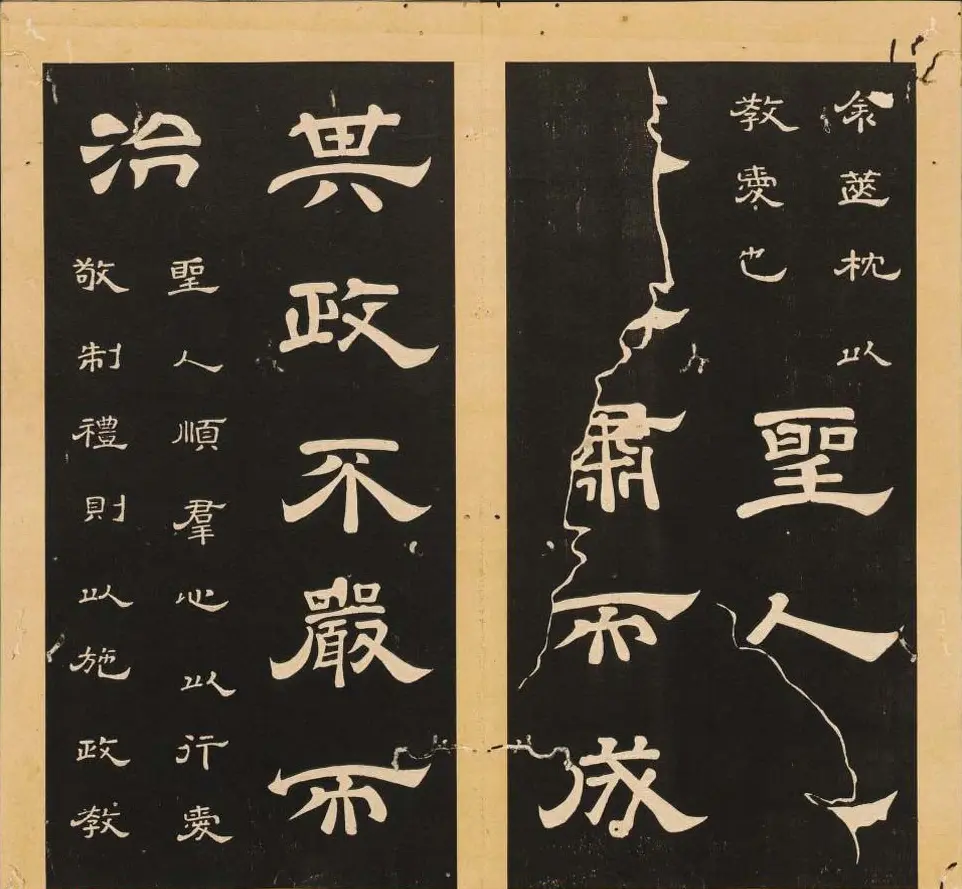 衾篋枕以
教愛也
聖人
肅而成
其政不嚴而
治
聖人順羣心以行愛
敬制禮則以施政教